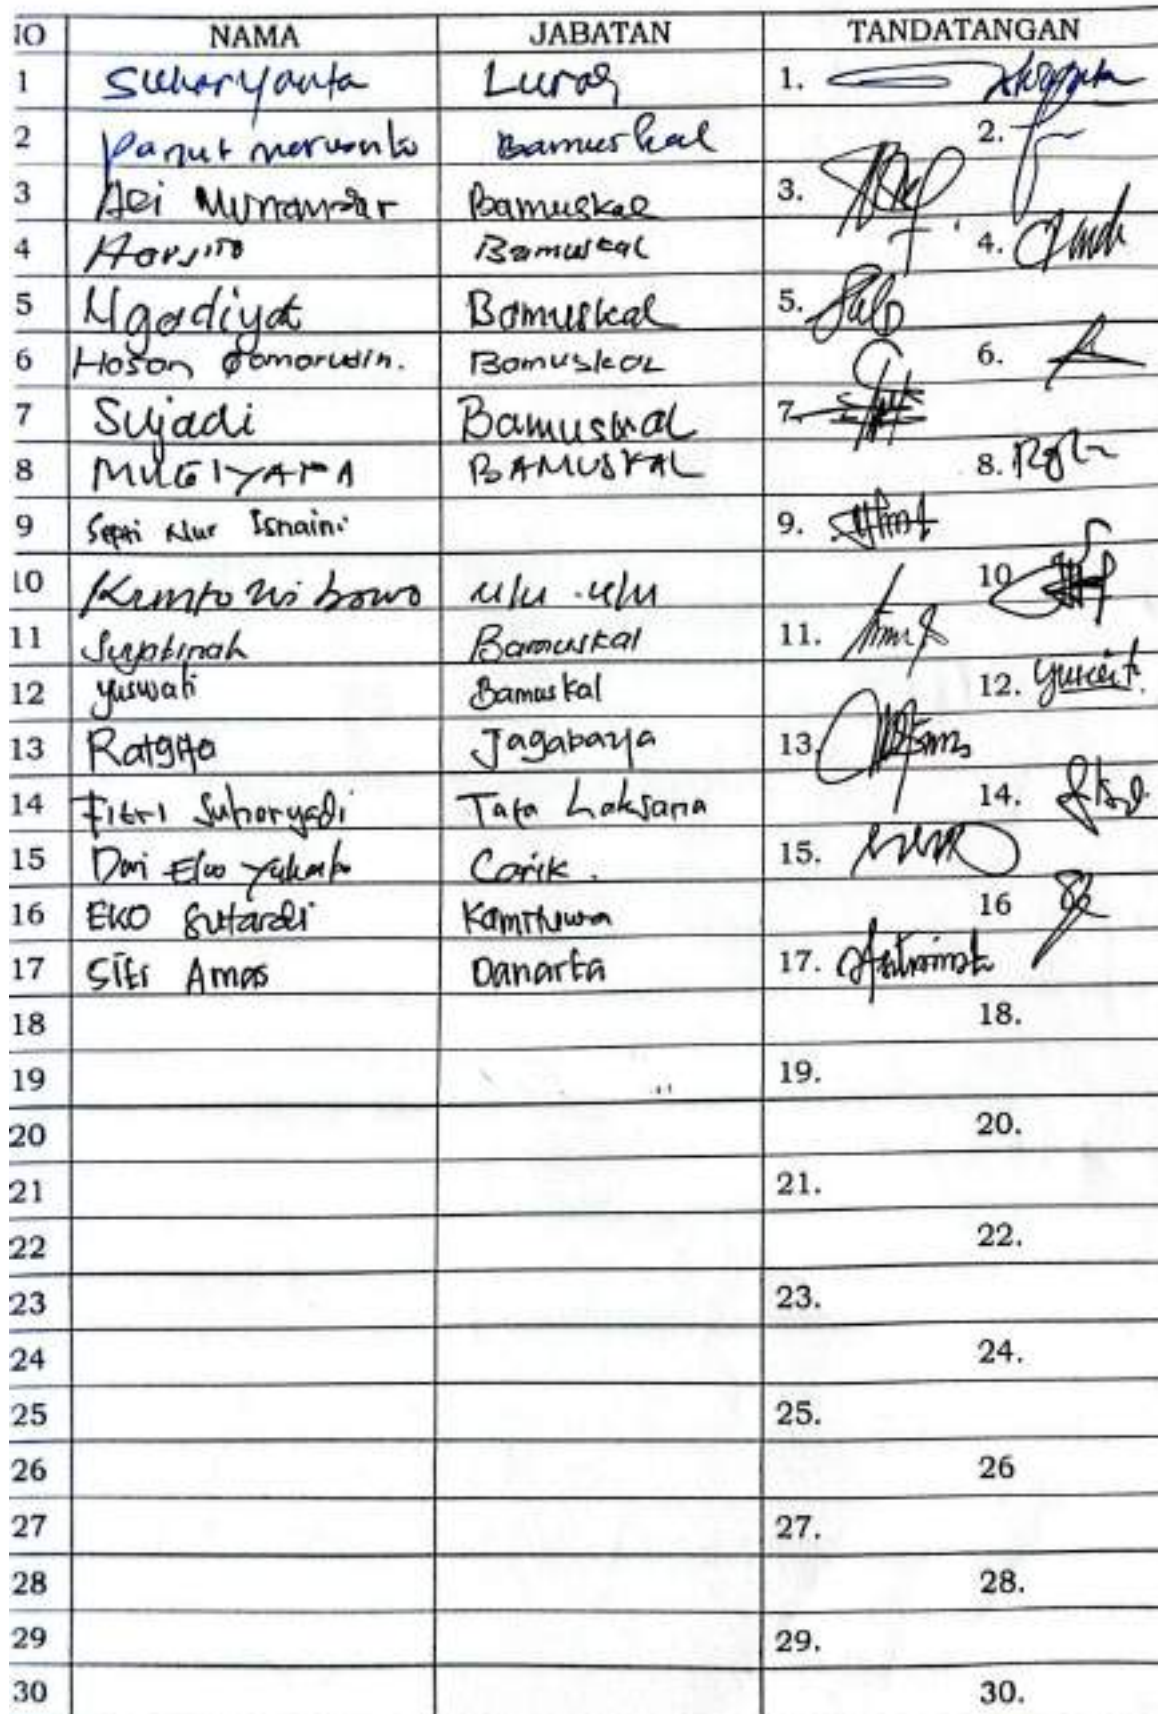 NO NAMA JABATAN TANDATANGAN
1 Suharyanta Lurah 1.
2 Panut Bamuskal 2.
3 Munandar Bamuskal 3.
4 Harsito Bamuskal 4.
5 Ngadiyat Bamuskal 5.
6 Hasan Qomarudin. Bamuskal 6.
7 Sujadi Bamuskal 7.
8 MUGIYANA BAMUSKAL 8.
9 Septi Nur Isnaini 9.
10 Kunto Wibowo ulu-ulu 10
11 Suyatinah Bamuskal 11.
12 Yuswati Bamuskal 12.
13 Jagabaya 13.
14 Fitri Suharyadi Tata Laksana 14.
15 Carik. 15.
16 EKO Sutardi Kamituwa 16
17 Siti Amas Danarta 17.
18 18.
19 19.
20 20.
21 21.
22 22.
23 23.
24 24.
25 25.
26 26
27 27.
28 28.
29 29.
30 30.